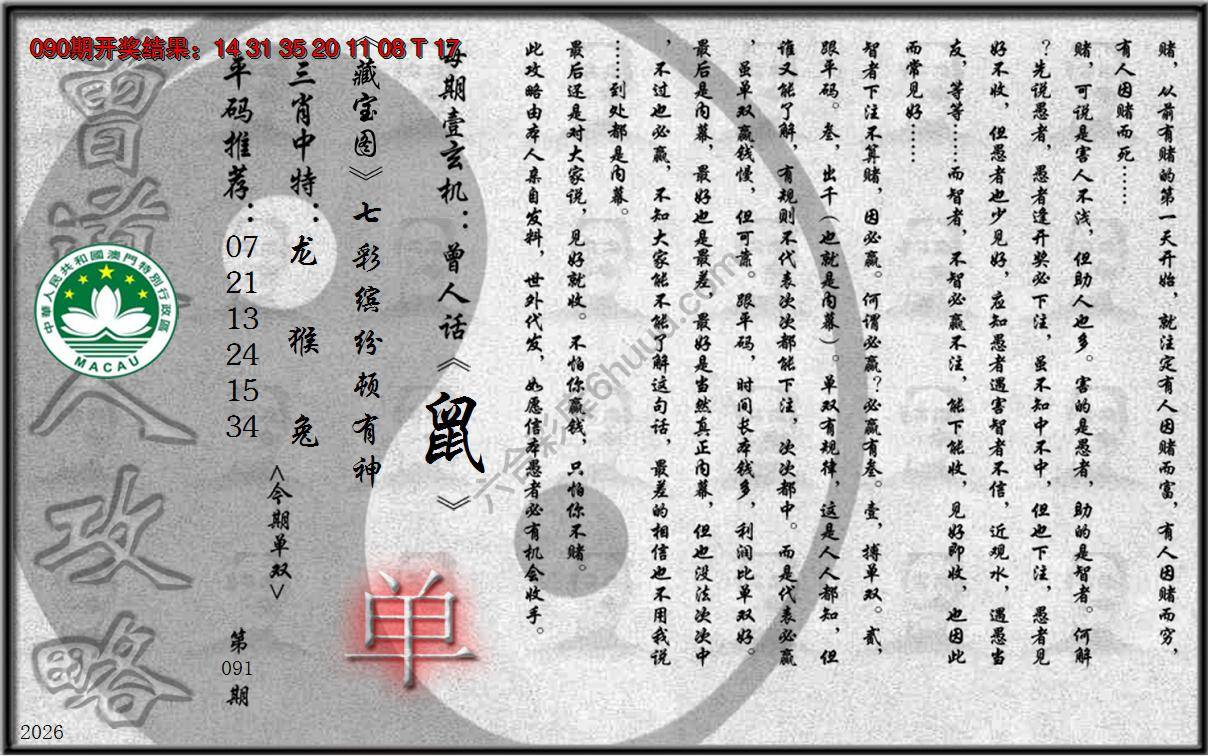 090期开奖结果：14 31 35 20 11 08 T 17
赌，从前有赌的第一天开始，就注定有人因赌而富，有人因赌而穷，
有人因赌而死……
赌，可说是害人不浅，但助人也多。害的是愚者，助的是智者。何解
？先说愚者，愚者逢开奖必下注，虽不知中不中，但也下注，愚者见
好不收，但愚者也少见好，应知愚者遇害智者不信，近观水，遇愚当
友，等等……而智者，不智必赢不注，能下能收，见好即收，也因此
而常见好……
智者下注不算赌，因必赢。何谓必赢？必赢有叁。壹，搏单双。贰，
跟平码。叁，出千（也就是内幕）。单双有规律，这是人人都知，但
谁又能了解，有规则不代表次次都能下注，次次都中。而是代表必赢
，虽单双赢钱慢，但可靠。跟平码，时间长本钱多，利润比单双好。
最后是内幕，最好也是最差，最好是当然真正内幕，但也没法次次中
，不过也必赢，不知大家能不能了解这句话，最差的相信也不用我说
……到处都是内幕。
最后还是对大家说，见好就收。不怕你赢钱，只怕你不赌。
此攻略由本人亲自发料，世外代发，如愿信本愚者必有机会收手。
每期壹玄机：曾人话《鼠》
《藏宝图》七彩缤纷顿有神
三肖中特：龙 猴 兔
平码推荐：
07
21
13
24
15
34
<今期单双>
单
第
091
期
曾道人攻略
中華人民共和國澳門特別行政區
MACAU
六合彩库6huuu.com
2026